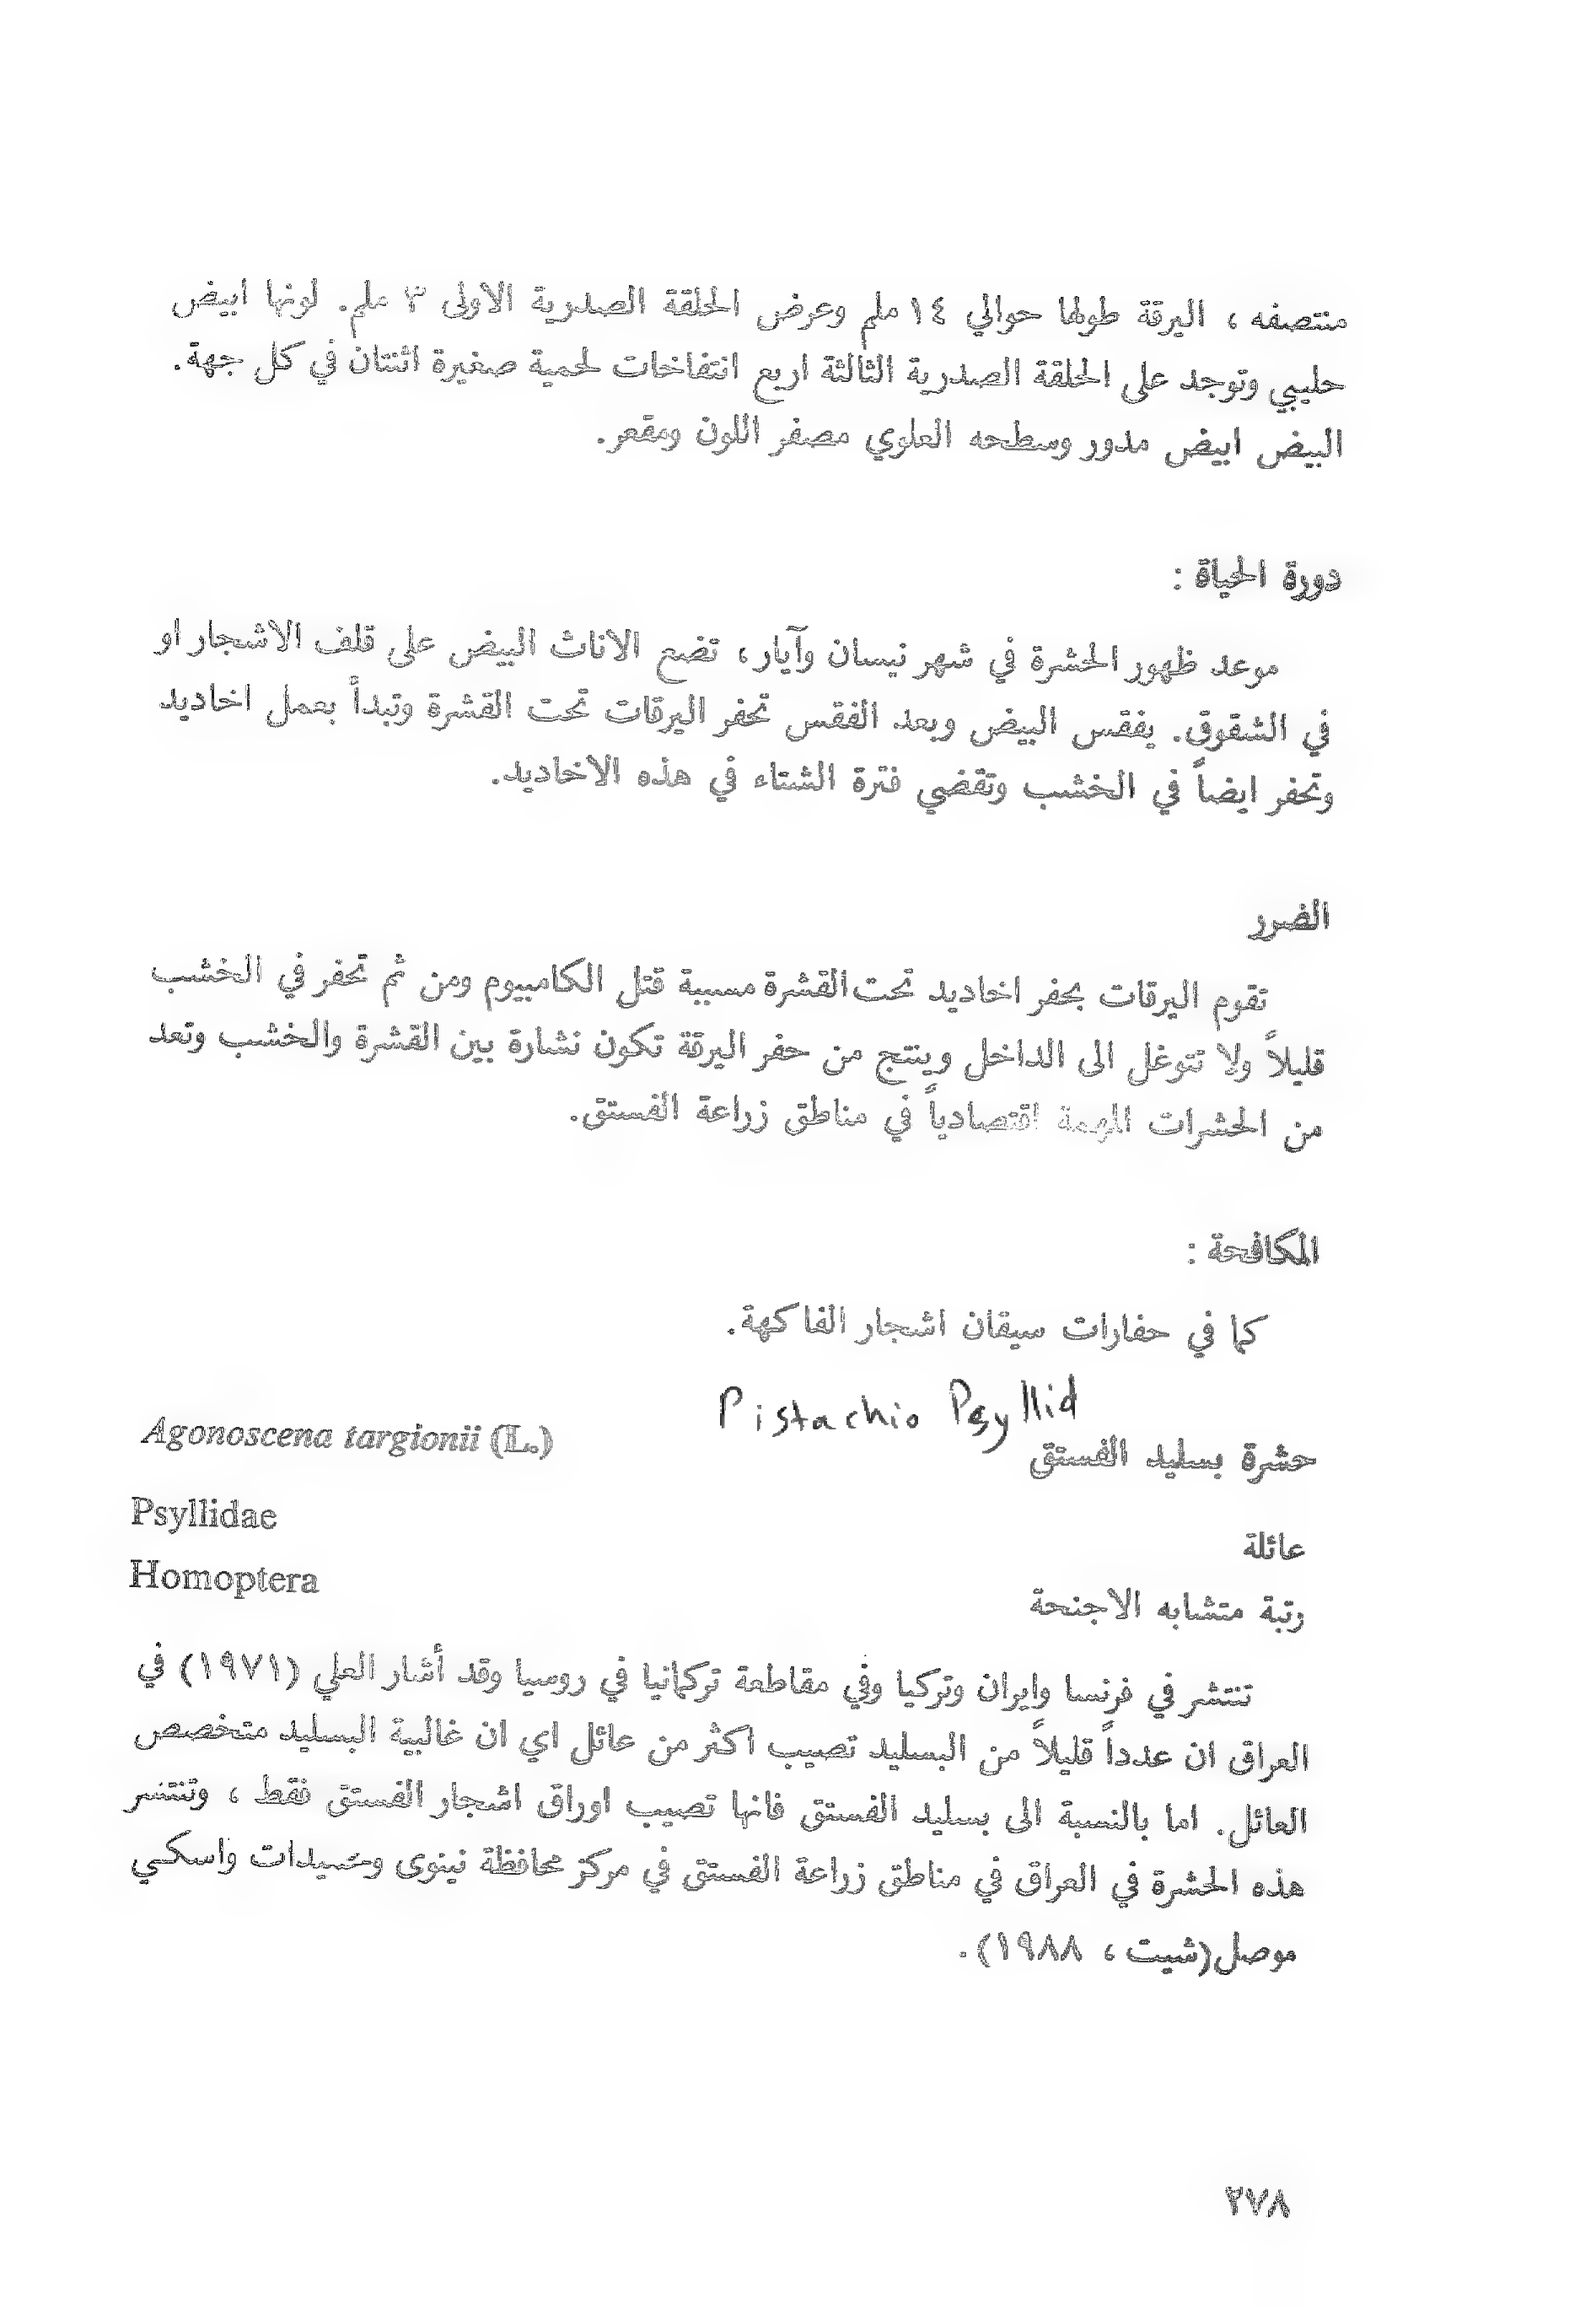 منتصفه ، اليرقة طولها حوالي ١٤ ملم وعرض الحلقة الصدرية الاولى ٣ ملم. لونها ابيض
حليبي وتوجد على الحلقة الصدرية الثالثة اربع انتفاخات لحمية صغيرة اثنتان في كل جهة.
البيض ابيض مدور وسطحه العلوي مصفر اللون ومقعر.
دورة الحياة :
موعد ظهور الحشرة في شهر نيسان وآيار، تضع الاناث البيض على قلف الاشجار او
في الشقوق. يفقس البيض وبعد الفقس تحفر اليرقات تحت القشرة وتبدأ بعمل اخاديد
وتحفر ايضاً في الخشب وتقضي فترة الشتاء في هذه الاخاديد.
الضرر
تقوم اليرقات بحفر اخاديد تحت القشرة مسببة قتل الكامبيوم ومن ثم تحفر في الخشب
قليلاً ولا تتوغل الى الداخل وينتج من حفر اليرقة تكون نشارة بين القشرة والخشب وتعد
من الحشرات المهمة اقتصادياً في مناطق زراعة الفستق.
المكافحة :
كما في حفارات سيقان اشجار الفاكهة.
Pistachio Psyllid
حشرة بسليد الفستق Agonoscena targionii (L.)
عائلة Psyllidae
رتبة متشابه الاجنحة Homoptera
تنتشر في فرنسا وايران وتركيا وفي مقاطعة تركمانيا في روسيا وقد أشار العلي (١٩٧١) في
العراق ان عدداً قليلاً من البسليد تصيب اكثر من عائل اي ان غالبية البسليد متخصص
العائل. اما بالنسبة الى بسليد الفستق فانها تصيب اوراق اشجار الفستق فقط ، وتنتشر
هذه الحشرة في العراق في مناطق زراعة الفستق في مركز محافظة نينوى واسكي
موصل (شيت ، ١٩٨٨).
٢٧٨